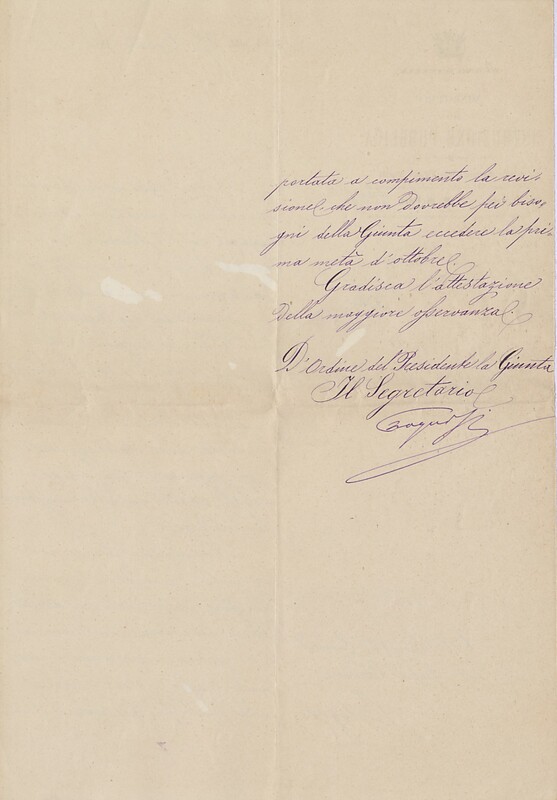 portata a compimento la revi-
sione che non dovrebbe pei biso-
gni della Giunta eccedere la pri-
ma metà d'ottobre.
Gradisca l'attestazione
della maggiore osservanza.
D'Ordine del Presidente la Giunta
Il Segretario